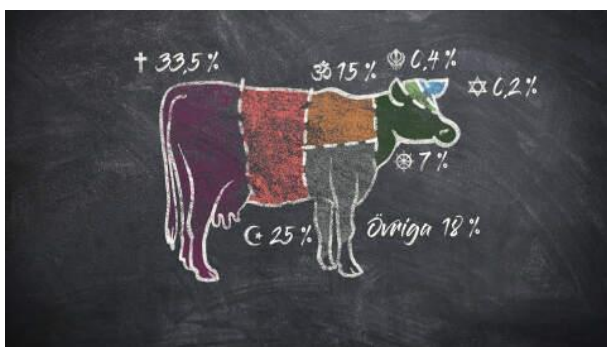 ✝ 33,5 %
🕉 15 %
☬ 0,4 %
✡ 0,2 %
☸ 7 %
☪ 25 %
Övriga 18 %